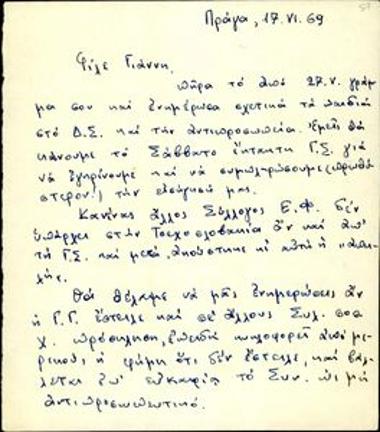 Πράγα, 17.VI.69
Φίλε Γιάννη,
πῆρα τό ἀπό 27.V. γράμ
μα σου καί ἐνημέρωσα σχετικά τά παιδιά
στό Δ.Σ. καί τήν ἀντιπροσωπεία. Ἐμεῖς θά
κάνουμε τό Σάββατο ἔκτακτη Γ.Σ. γιά
νά ἐγκρίνουμε καί νά συμπληρώσουμε
τήν εἰσήγησή μας.
Κανένας ἄλλος Σύλλογος Ε.Φ. δέν
ὑπάρχει στήν Τσεχοσλοβακία ἄν καί ἀπ'
τή Γ.Σ. καί μετά, ἀκούστηκε κι αὐτή ἡ "ἀπει
λή".
Θά θέλαμε νά μᾶς ἐνημερώσεις ἄν
ἡ Γ.Γ. ἔστειλε καί σέ ἄλλους Συλ. σας
χ. πρόσκληση, ἐπειδή κυκλοφορεῖ ἀπό με
ρικούς, ἡ φήμη ὅτι δέν ἔστειλε, καί βάλ
λεται ἐπ' εὐκαιρία τό Συν. ὡς μή
ἀντιπροσωπευτικό.